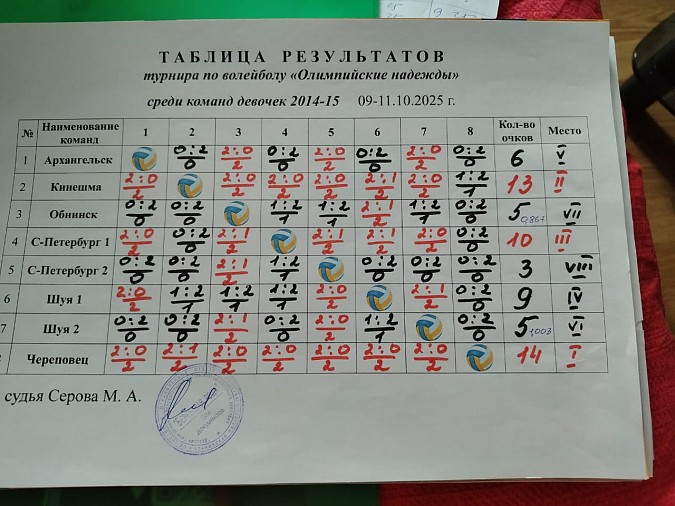 ТАБЛИЦА РЕЗУЛЬТАТОВ
турнира по волейболу «Олимпийские надежды»
среди команд девочек 2014-15 09-11.10.2025 г.
№ Наименование команд 1 2 3 4 5 6 7 8 Кол-во очков Место
1 Архангельск 0:2 2:0 0:2 2:0 0:2 2:0 0:2 6 V
0 2 0 2 0 2 0
2 Кинешма 2:0 2:0 2:0 2:0 2:1 2:0 1:2 13 II
2 2 2 2 2 2 1
3 Обнинск 0:2 0:2 1:2 1:2 2:1 1:2 0:2 5 0,867 VII
0 0 1 1 2 1 0
4 С-Петербург 1 2:0 0:2 2:1 2:1 2:1 2:0 0:2 10 III
2 0 2 2 2 2 0
5 С-Петербург 2 0:2 0:2 2:1 1:2 0:2 0:2 0:2 3 VIII
0 0 2 1 0 0 0
6 Шуя 1 2:0 1:2 1:2 1:2 2:0 2:1 0:2 9 IV
2 1 1 1 2 2 0
7 Шуя 2 0:2 0:2 2:1 0:2 2:0 1:2 0:2 5 1,003 VI
0 0 2 0 2 1 0
Череповец 2:0 2:1 2:0 2:0 2:0 2:0 2:0 14 I
2 2 2 2 2 2 2
судья Серова М. А.